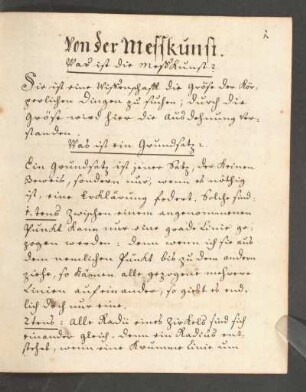 1.
Von der Messkunst.
Was ist die Messkunst?
Sie ist eine Wissenschaft die Gröse der Kör-
perlichen Dingen zu suchen, durch die
Gröse wird hier die Ausdehnung ver-
standen.
Was ist ein Grundsatz?
Ein Grundsatz ist jener Satz, der keinen
Beweis, sondern nur, wenn es nöthig
ist, eine Erklärung fodert. Solche sind
1tens Zwischen einem angenommenen
Punkt kann nur eine grade Linie ge-
zogen werden: denn wenn ich sie aus
dem nemlichen Punkt bis zu dem andern
ziehe, so kämen alle gezogene mehrere
Linien auf einander, so giebt es end-
lich doch nur eine.
2tens: Alle Radii eines Zirkels sind sich
einander gleich. Denn ein Radius ent-
stehet, wenn eine krumme Linie um